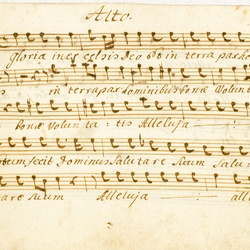 Alto.
gloria in excelsis Deo et in terra pax ho
is in terra pax hominibus bonae Volunt
bonae Volunta : tis Alleluja
tum fecit Dominus Salutare Suum Salu :
are Suum Alleluja all